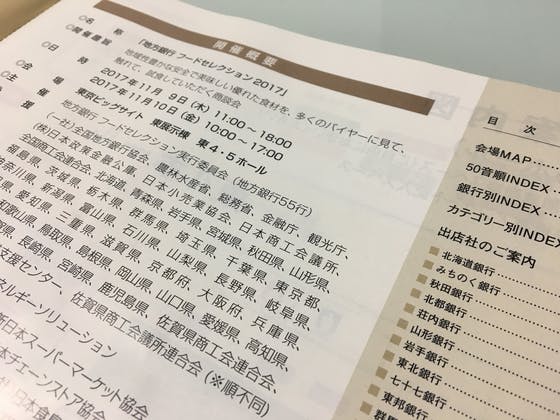 開催概要
○名 称 「地方銀行 フードセレクション 2017」
○開催趣旨 地域性豊かな安全で美味しい優れた食材を、多くのバイヤーに見て、
触れて、試食していただく商談会
○日 時 2017年11月 9日(木) 11:00〜18:00
2017年11月10日(金) 10:00〜17:00
○会 場 東京ビッグサイト 東展示棟 東4・5ホール
○主 催 地方銀行 フードセレクション実行委員会(地方銀行55行)
援 (一社)全国地方銀行協会、農林水産省、総務省、金融庁、観光庁、
(株)日本政策金融公庫、日本小売業協会、日本商工会議所、
全国商工会連合会、北海道、青森県、岩手県、宮城県、秋田県、山形県、
福島県、茨城県、栃木県、群馬県、埼玉県、千葉県、東京都、
神奈川県、新潟県、富山県、石川県、山梨県、長野県、岐阜県、
県、愛知県、三重県、滋賀県、京都府、大阪府、兵庫県、
和歌山県、鳥取県、島根県、岡山県、山口県、愛媛県、高知県、
県、長崎県、宮崎県、鹿児島県、佐賀県商工会連合会、
支援センター、佐賀県商工会議所連合会(※順不同)
スルギーソリューション
新日本スーパーマーケット協会
本チェーンストア協会
目 次
会場MAP
50音順INDEX
銀行別INDEX
カテゴリー別INDEX
出店社のご案内
北海道銀行
みちのく銀行
秋田銀行
北都銀行
荘内銀行
山形銀行
岩手銀行
東北銀行
七十七銀行
東邦銀行